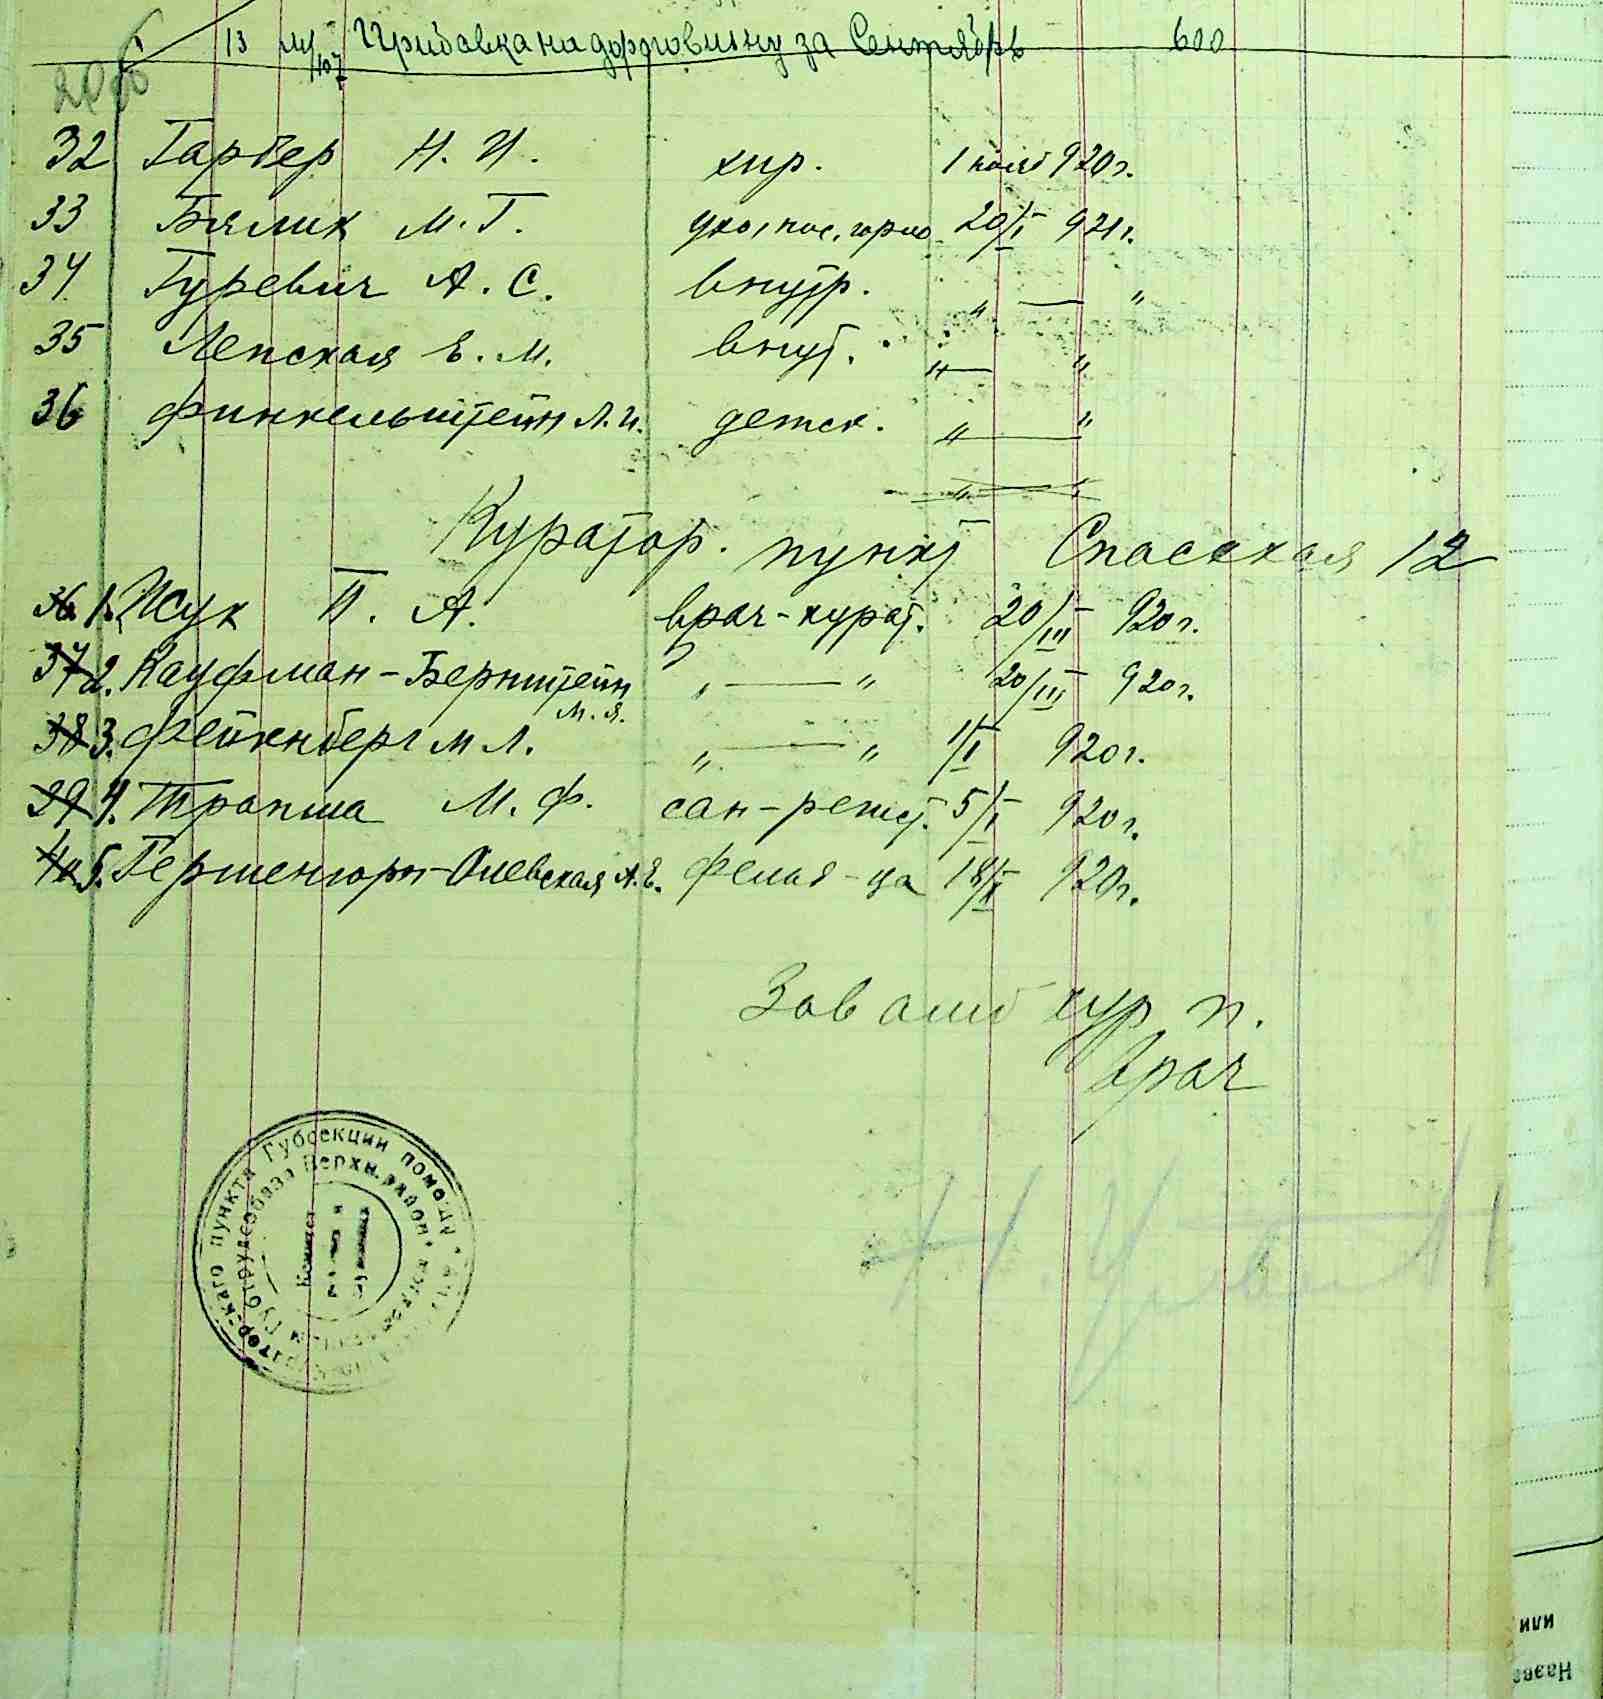 13 Прибавка на дороговизну за Сентябрь 600
32 Гарбер Н. И. хир. 1 нояб 920 г.
33 Бялик М. Г. ухо, нос, горло 20/I 921 г.
34 Гуревич А. С. внутр. " — "
35 Лепская Е. М. внут. " — "
36 Финкельштейн Л. И. детск. " — "
Куратор. пункт Спасская 12
36 1. Жук П. А. врач-курат. 20/III 920 г.
37 2. Кауфман-Бернштейн М. Я. " — " 20/III 920 г.
38 3. Фейкнберг М Л. " — " 1/I 920 г.
39 4. Трапша М. Ф. сан-регист. 5/I 920 г.
40 5. Гершенгорн-Олевская А. Е. Фельд-ца 18/X 920 г.
Зав амб кур п.
Врач
пункта Губсекции помощи
Верхн. район
или
Назва